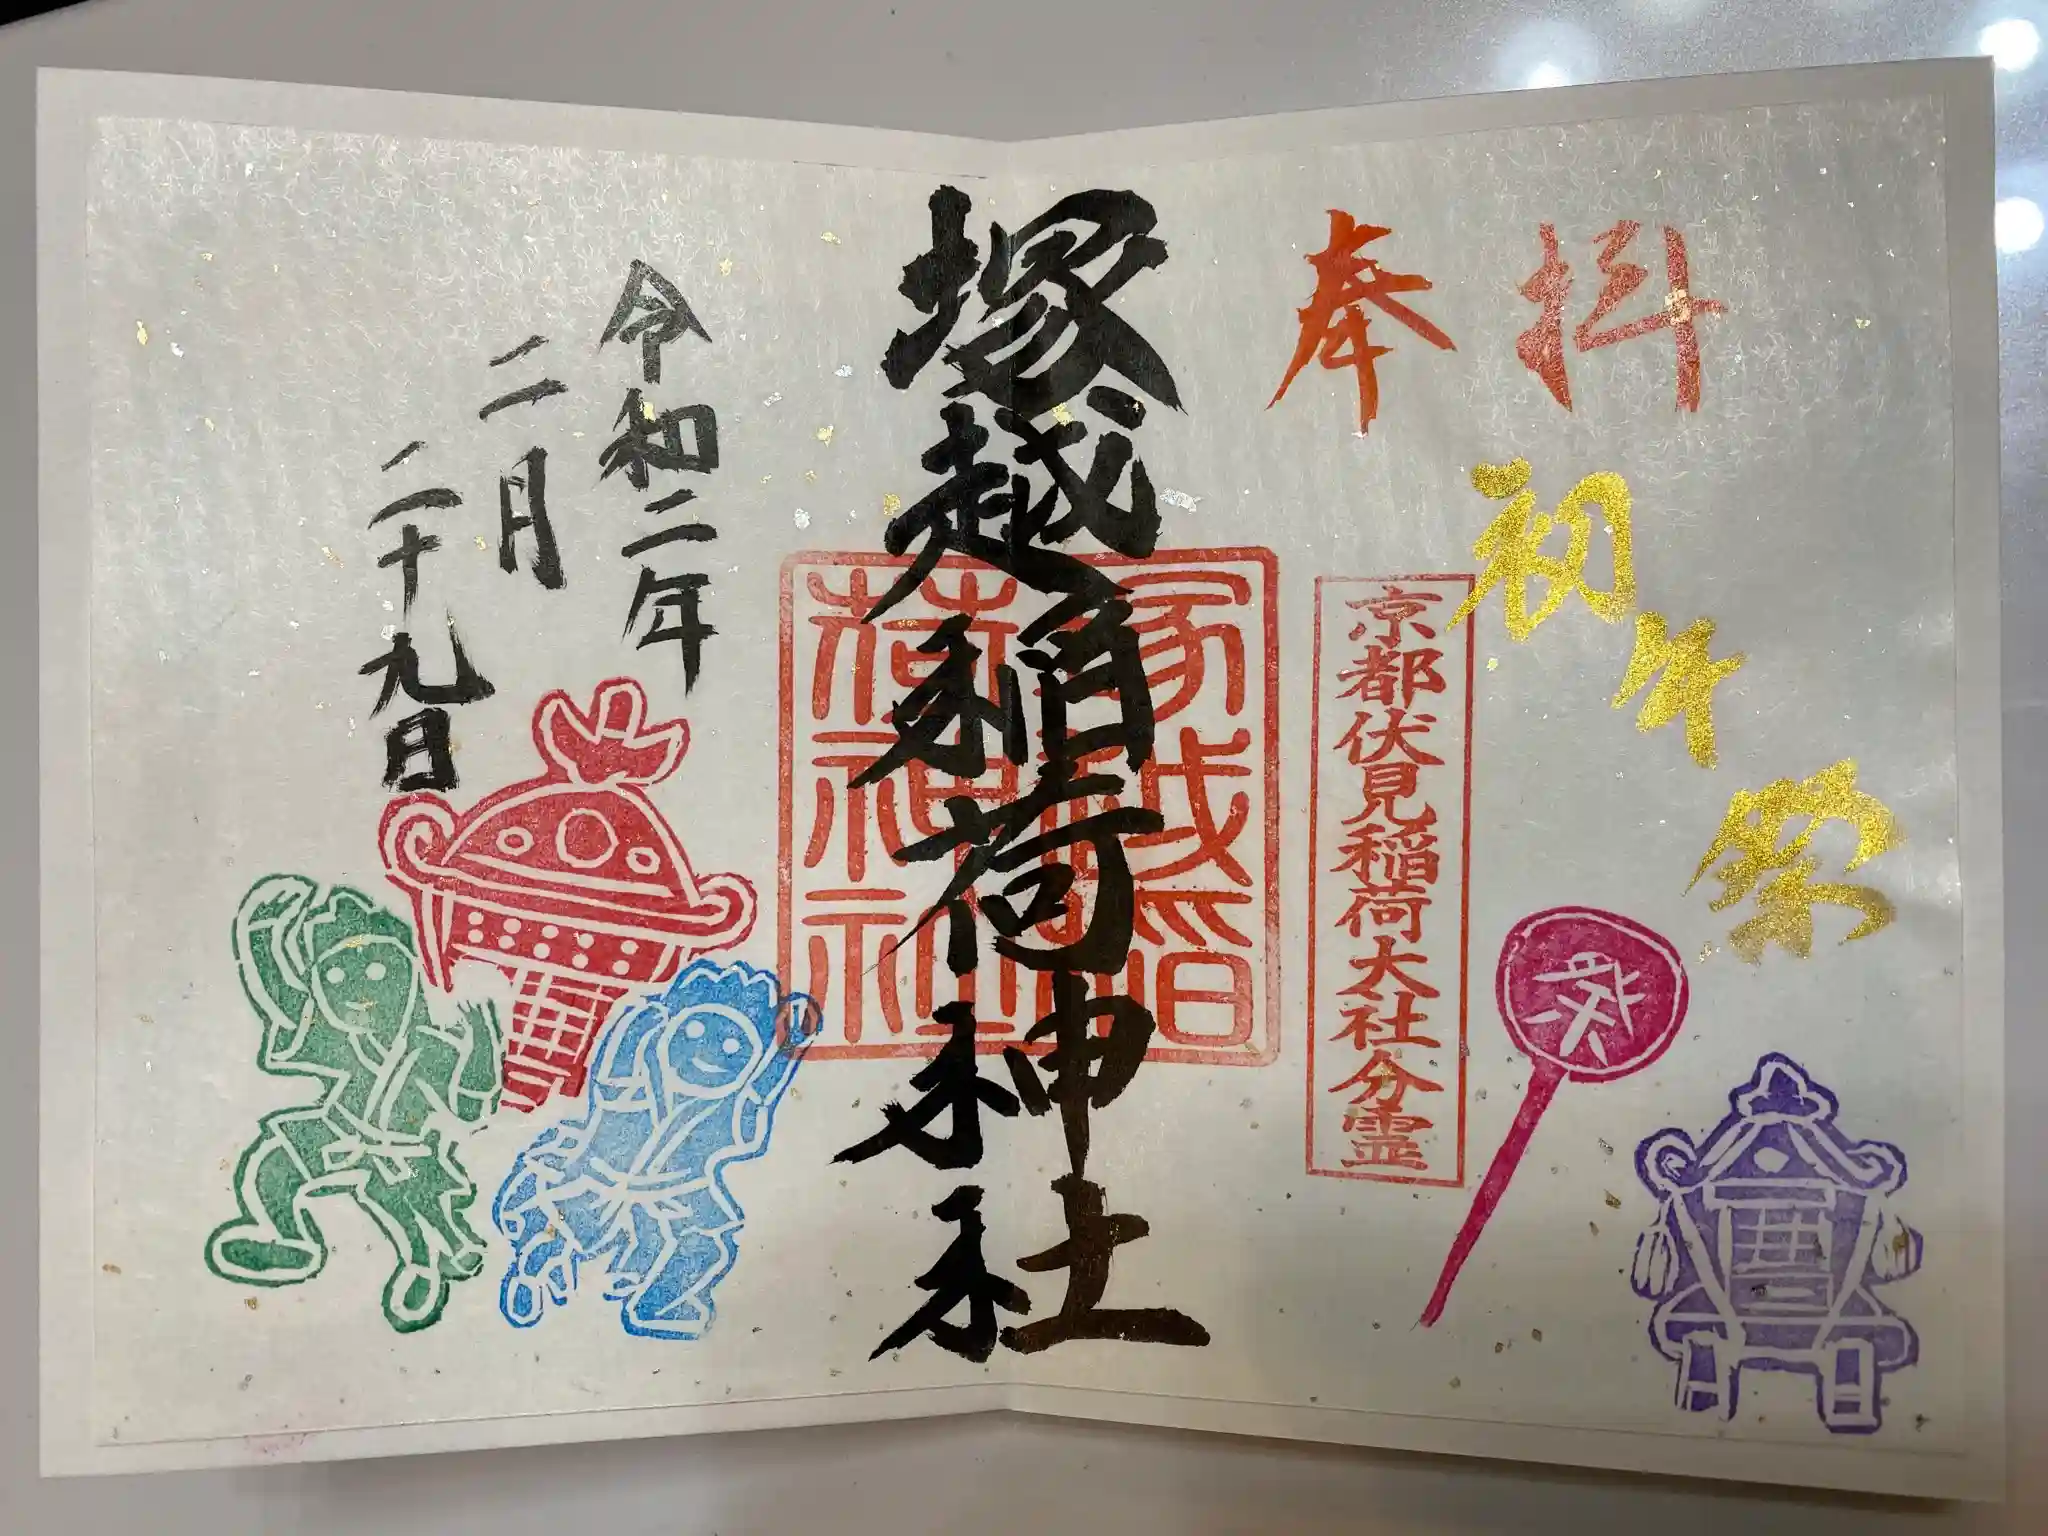 奉拝
初午祭
京都伏見稲荷大社分霊
塚越稲荷神社
塚越稲
荷神社
令和二年
二月
二十九日